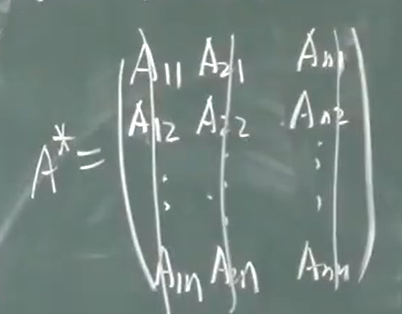 A₁₁ A₂₁ Aₙ₁
A₁₂ A₂₂ Aₙ₂
A* =
⋮ ⋮ ⋮
A₁ₙ A₂ₙ Aₙₙ